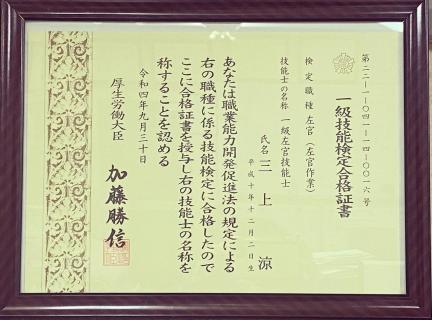 第二二-一-〇四一-一四-〇〇一六号
一級技能検定合格証書
検定職種 左官(左官作業)
技能士の名称 一級左官技能士
氏名 三上 涼
平成十年十二月二日生
あなたは職業能力開発促進法の規定による
右の職種に係る技能検定に合格したので
ここに合格証書を授与し右の技能士の名称を
称することを認める
令和四年九月三十日
厚生労働大臣 加藤勝信